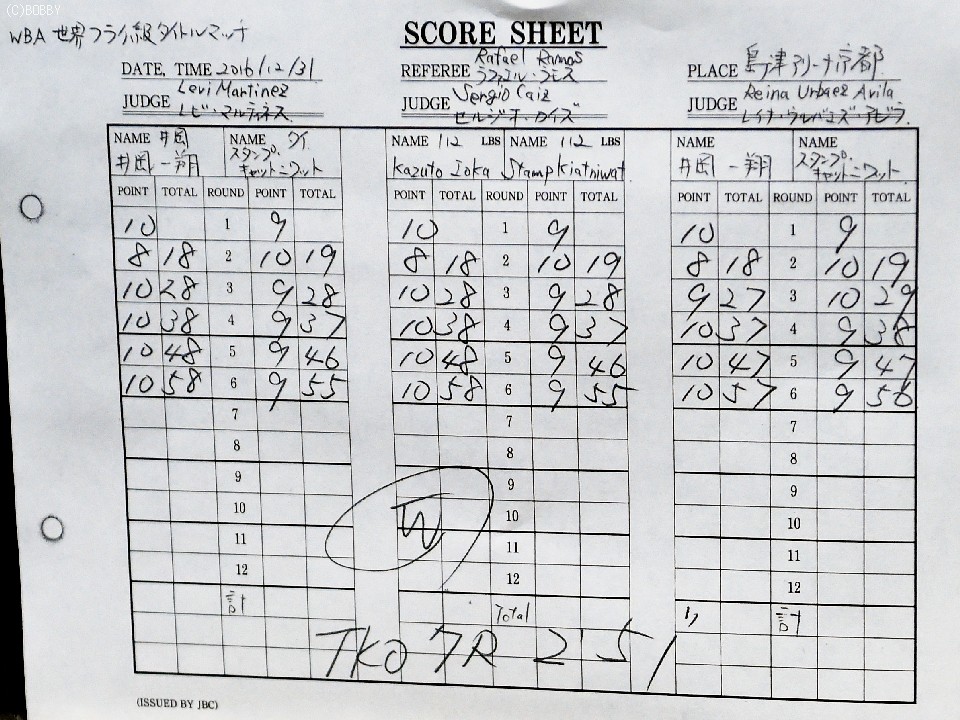 (C)BOBBY
WBA 世界フライ級タイトルマッチ
SCORE SHEET
DATE, TIME 2016/12/31 REFEREE Rafael Ramos ラファエル・ラモス PLACE 島津アリーナ京都
JUDGE Levi Martinez レビ・マルティネス JUDGE Sergio Caiz セルジオ・カイズ JUDGE Reina Urbaez Avila レイナ・ウルバエズ・アビラ
NAME 井岡 NAME タイ NAME 112 LBS NAME 112 LBS NAME NAME
井岡 一翔 スタンプ・キャットニワット Kazuto Ioka Stamp Kiatniwat 井岡 一翔 スタンプ・キャットニワット
POINT TOTAL ROUND POINT TOTAL POINT TOTAL ROUND POINT TOTAL POINT TOTAL ROUND POINT TOTAL
10 1 9 10 1 9 10 1 9
8 18 2 10 19 8 18 2 10 19 8 18 2 10 19
10 28 3 9 28 10 28 3 9 28 9 27 3 10 29
10 38 4 9 37 10 38 4 9 37 10 37 4 9 38
10 48 5 9 46 10 48 5 9 46 10 47 5 9 47
10 58 6 9 55 10 58 6 9 55 10 57 6 9 56
7 7 7
8 8 8
9 9 9
10 10 10
11 11 11
12 12 12
W
計 Total 計
TKO 7R 2'51
(ISSUED BY JBC)